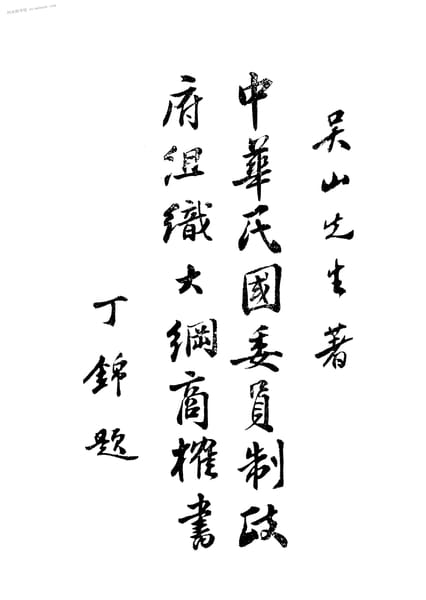 吴山先生著
中華民國委員制政
府組織大綱商榷書
丁錦題